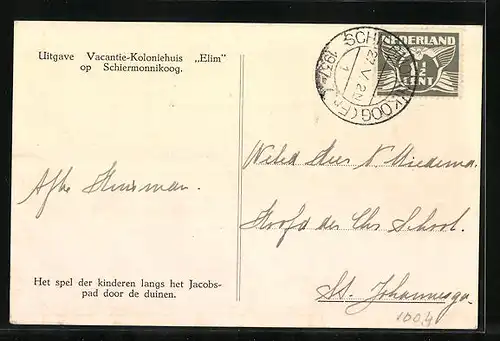 Uitgave Vacantie-Koloniehuis „Elim”
op Schiermonnikoog.
NEDERLAND
1½
CENT
27 V
1937
Afke Huisman.
Weled Heer N Miedema.
Hoofd der Chr School.
St. Johannesga
Het spel der kinderen langs het Jacobs-
pad door de duinen.